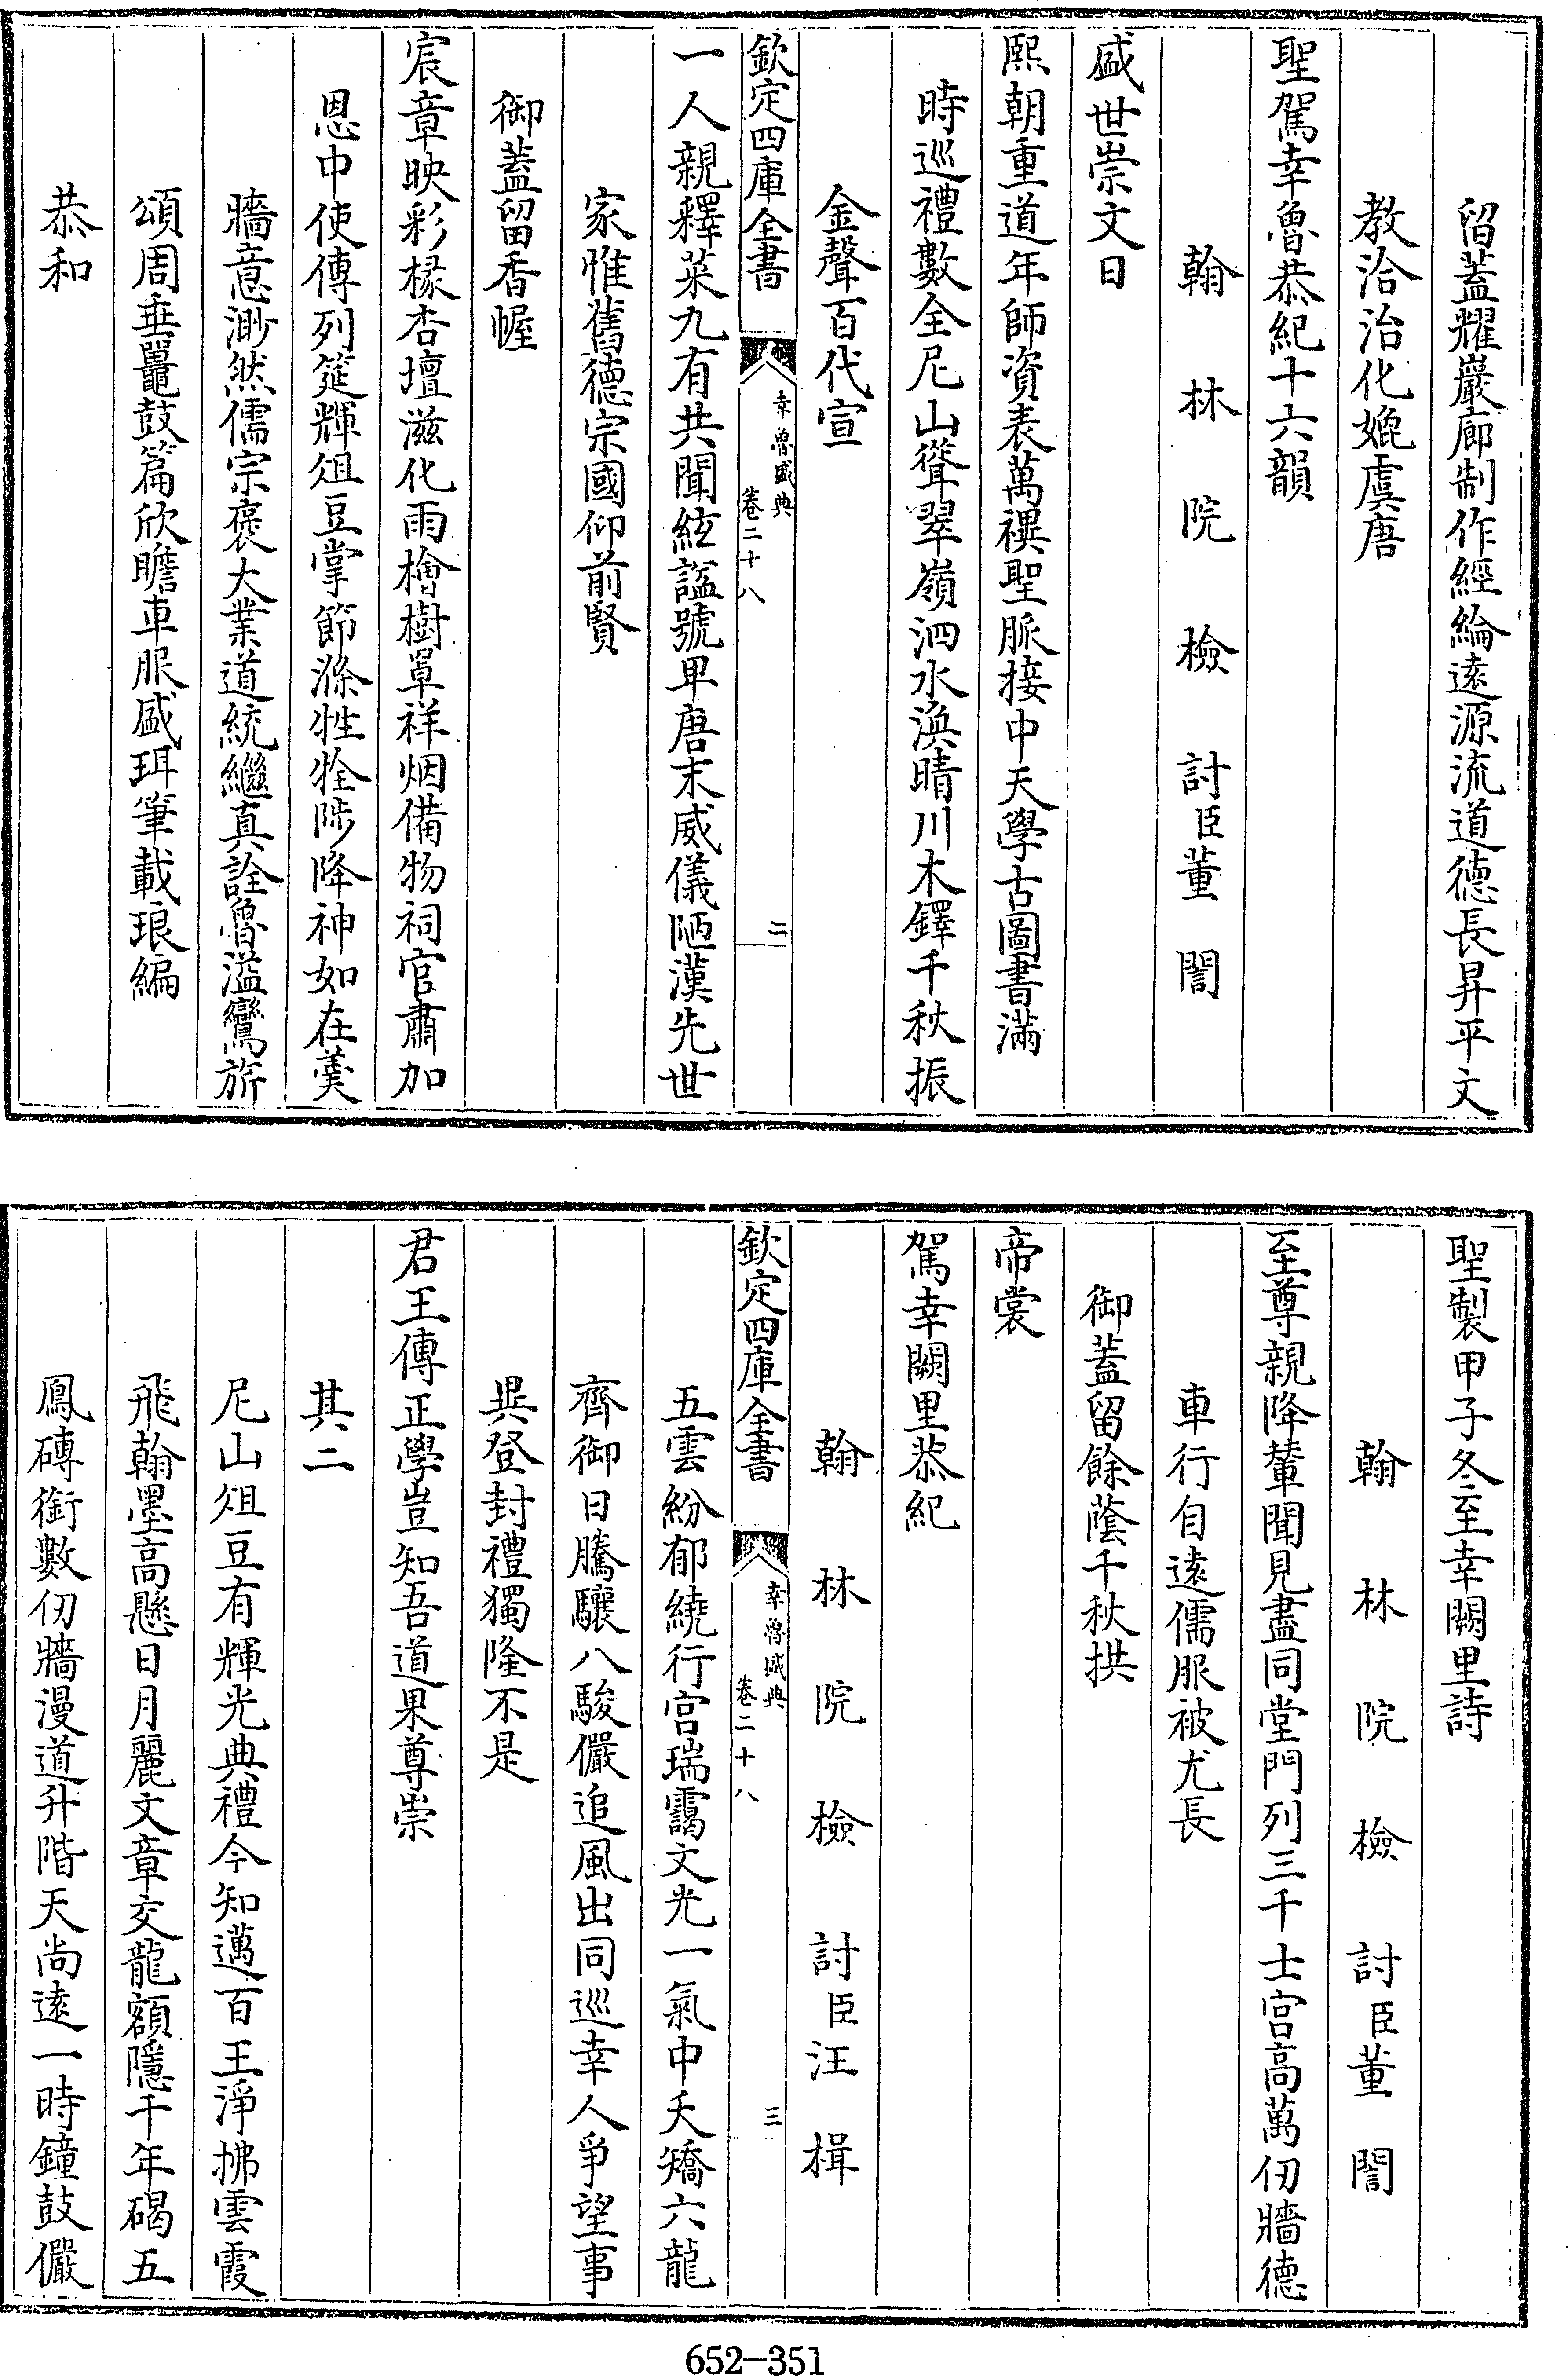 留蓋耀巖廊制作經綸遠源流道德長昇平文
教洽治化媲虞唐
聖駕幸魯恭紀十六韻
翰林院檢討臣董誾
盛世崇文日
熙朝重道年師資表萬禩聖脈接中天學古圖書滿
時巡禮數全尼山聳翠嶺泗水渙晴川木鐸千秋振
金聲百代宣
欽定四庫全書
幸魯盛典
卷二十八
二
一人親釋菜九有共聞絃諡號卑唐末威儀陋漢先世
家惟舊德宗國仰前賢
御蓋留香幄
宸章映彩椽杏壇滋化雨檜樹罩祥烟備物祠官肅加
恩中使傳列筵輝俎豆掌節滌牲牷陟降神如在羹
牆意渺然儒宗褒大業道統繼真詮魯溢鸞旂
頌周垂鼉鼓篇欣瞻車服盛珥筆載琅編
恭和
聖製甲子冬至幸闕里詩
翰林院檢討臣董誾
至尊親降輦聞見盡同堂門列三千士宮高萬仞牆德
車行自遠儒服被尤長
御蓋留餘蔭千秋拱
帝裳
駕幸闕里恭紀
翰林院檢討臣汪楫
欽定四庫全書
幸魯盛典
卷二十八
三
五雲紛郁繞行宫瑞靄文光一氣中夭矯六龍
齊御日騰驤八駿儼追風出同巡幸人爭望事
異登封禮獨隆不是
君王傳正學豈知吾道果尊崇
其二
尼山俎豆有輝光典禮今知邁百王淨拂雲霞
飛翰墨高懸日月麗文章交龍額隱千年碣五
鳳磚銜數仞牆漫道升階天尚遠一時鐘鼓儼
652-351